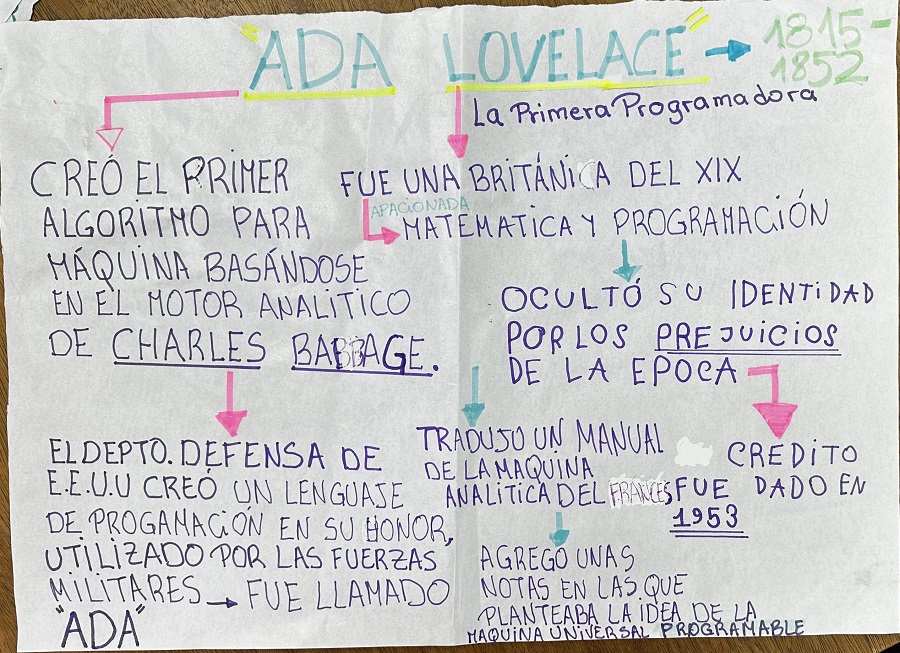 "ADA LOVELACE" → 1815-
1852
La Primera Programadora
CREÓ EL PRIMER
ALGORITMO PARA
MÁQUINA BASÁNDOSE
EN EL MOTOR ANALITICO
DE CHARLES BABBAGE.
EL DEPTO. DEFENSA DE
E.E.U.U CREÓ UN LENGUAJE
DE PROGAMACIÓN EN SU HONOR,
UTILIZADO POR LAS FUERZAS
MILITARES → FUE LLAMADO
"ADA"
FUE UNA BRITÁNICA DEL XIX
APACIONADA
MATEMATICA Y PROGRAMACIÓN
OCULTÓ SU IDENTIDAD
POR LOS PREJUICIOS
DE LA EPOCA
TRADUJO UN MANUAL
DE LA MAQUINA
ANALITICA DEL FRANCES
AGREGO UNAS
NOTAS EN LAS QUE
PLANTEABA LA IDEA DE LA
MAQUINA UNIVERSAL PROGRAMABLE
CREDITO
FUE DADO EN
1953